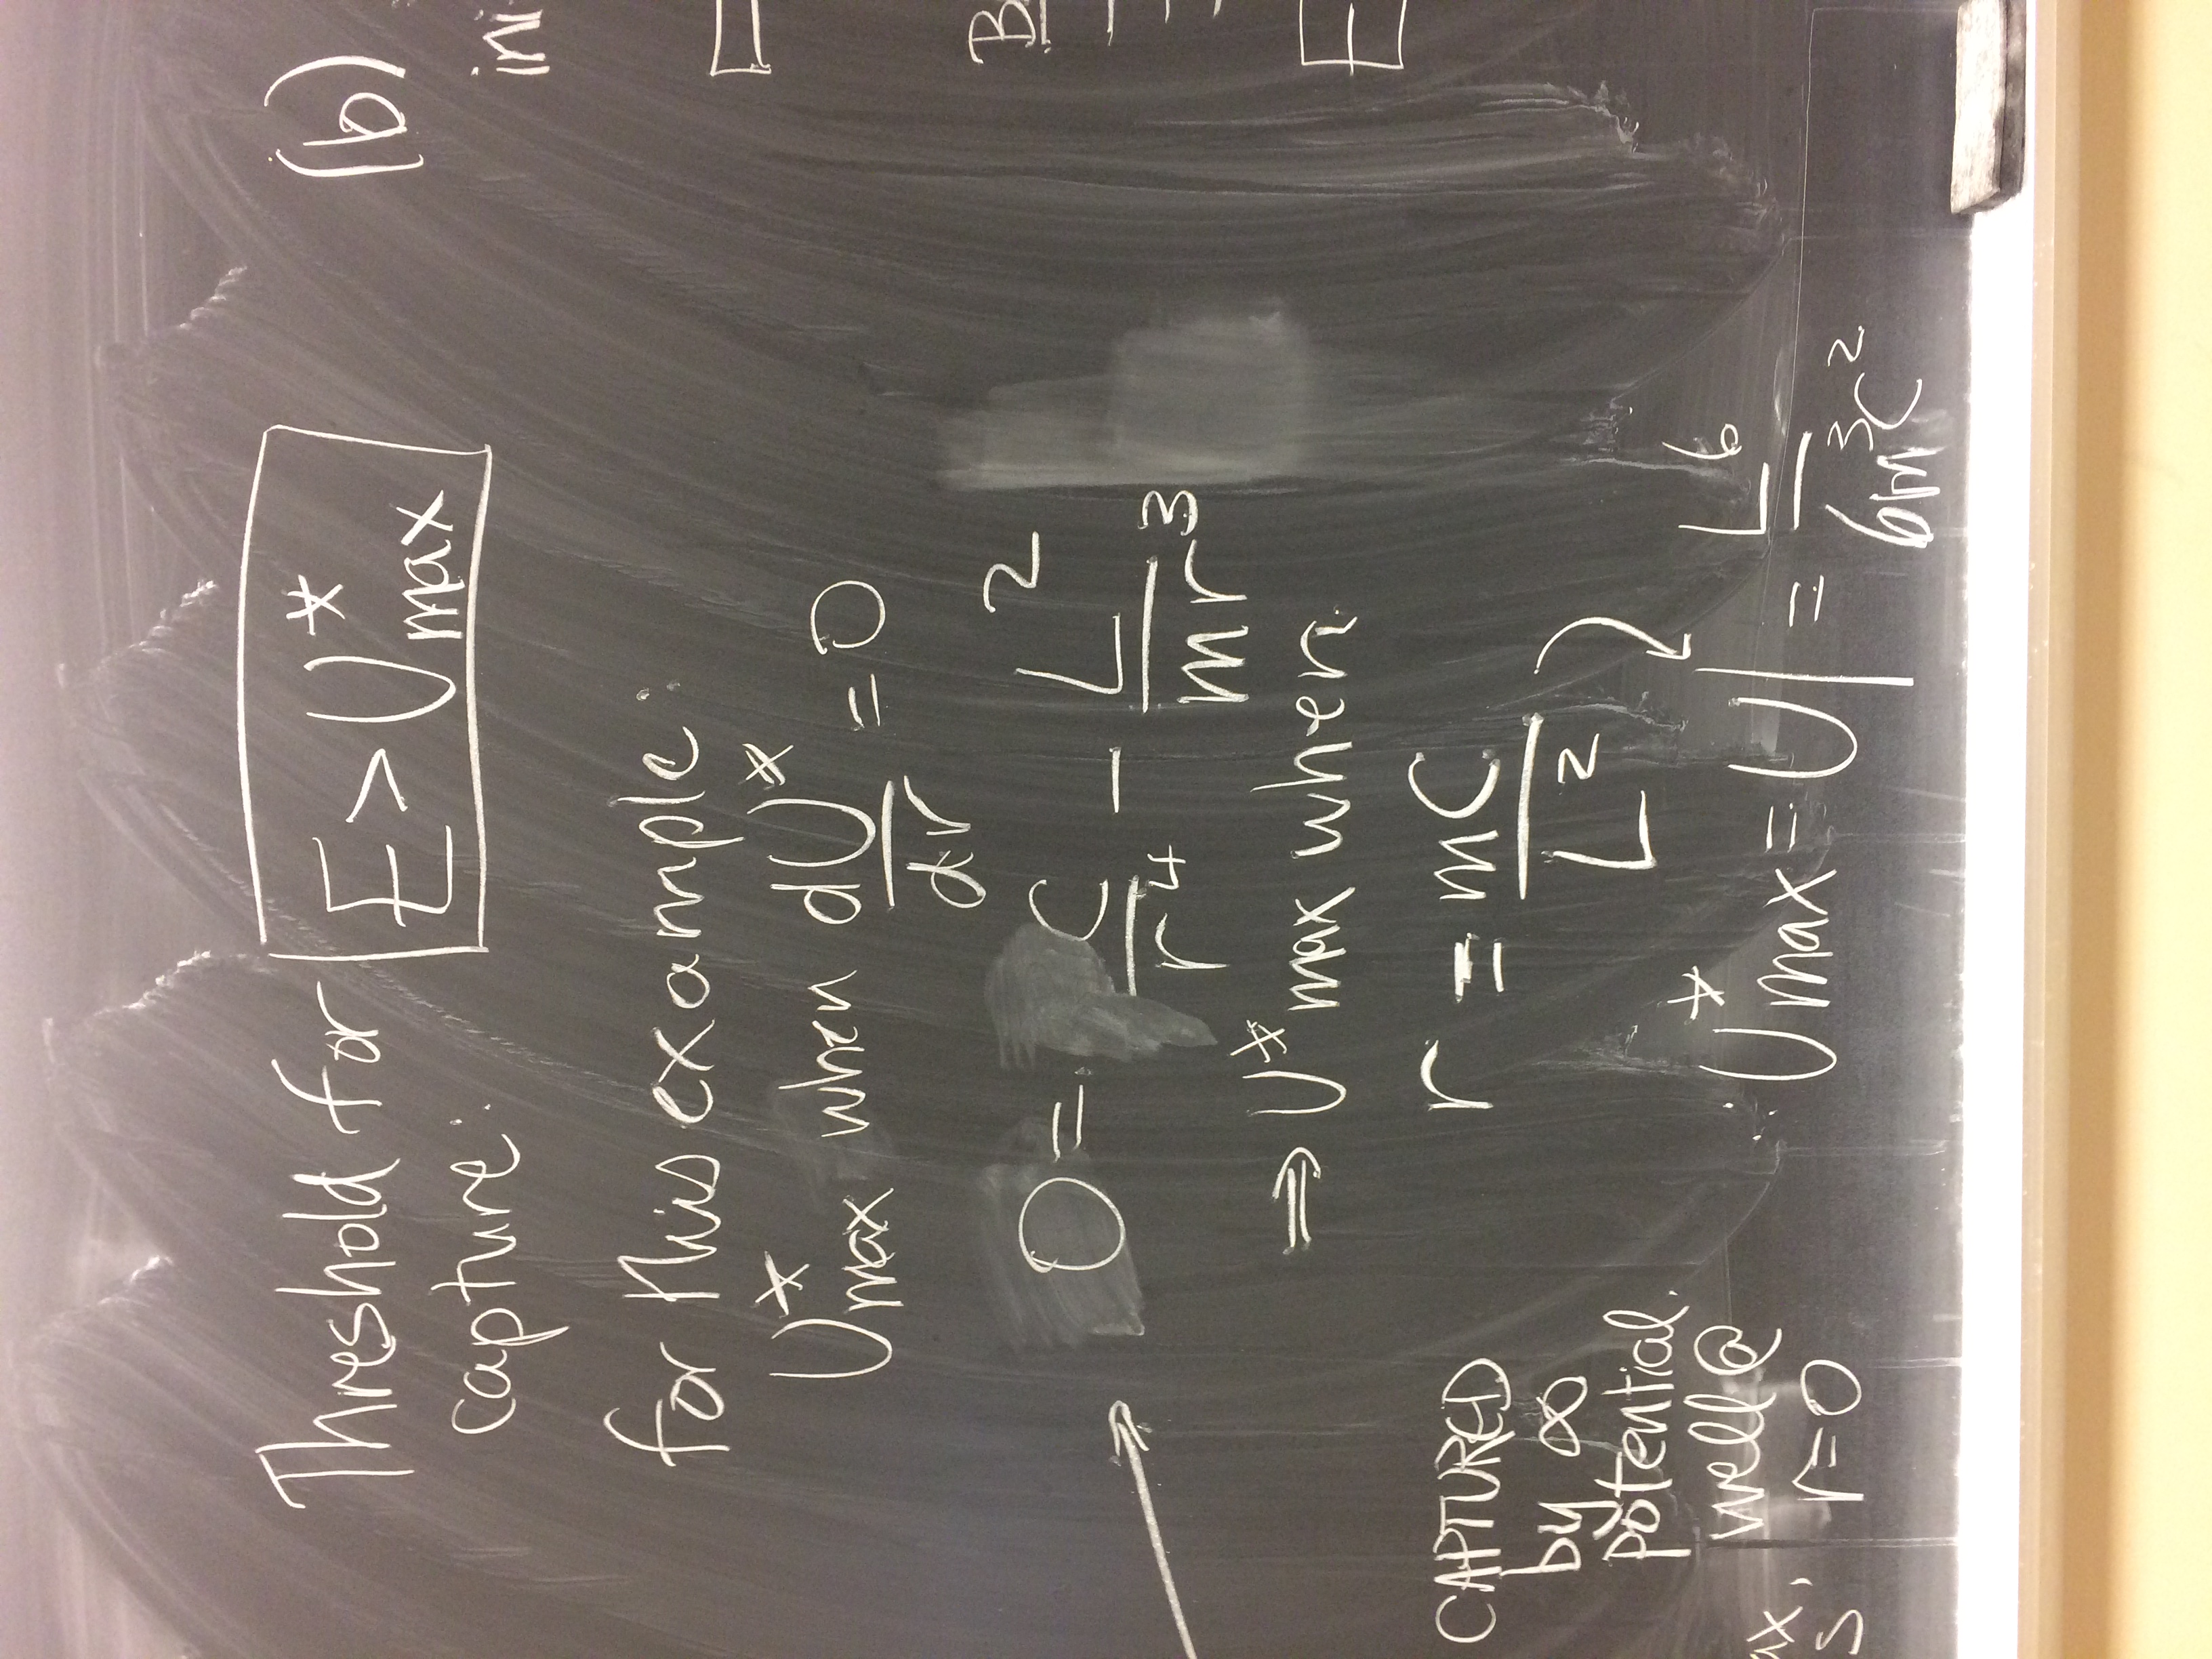 Threshold for E > U*max
capture:
for this example:
U*max when dU*/dr = 0
0 = C/r⁴ - L²/mr³
⇒ U* max when
r = mC/L²
∴ U*max = U| = L⁶/6m³C²
CAPTURED
by ∞
potential
well @
r=0
(b)